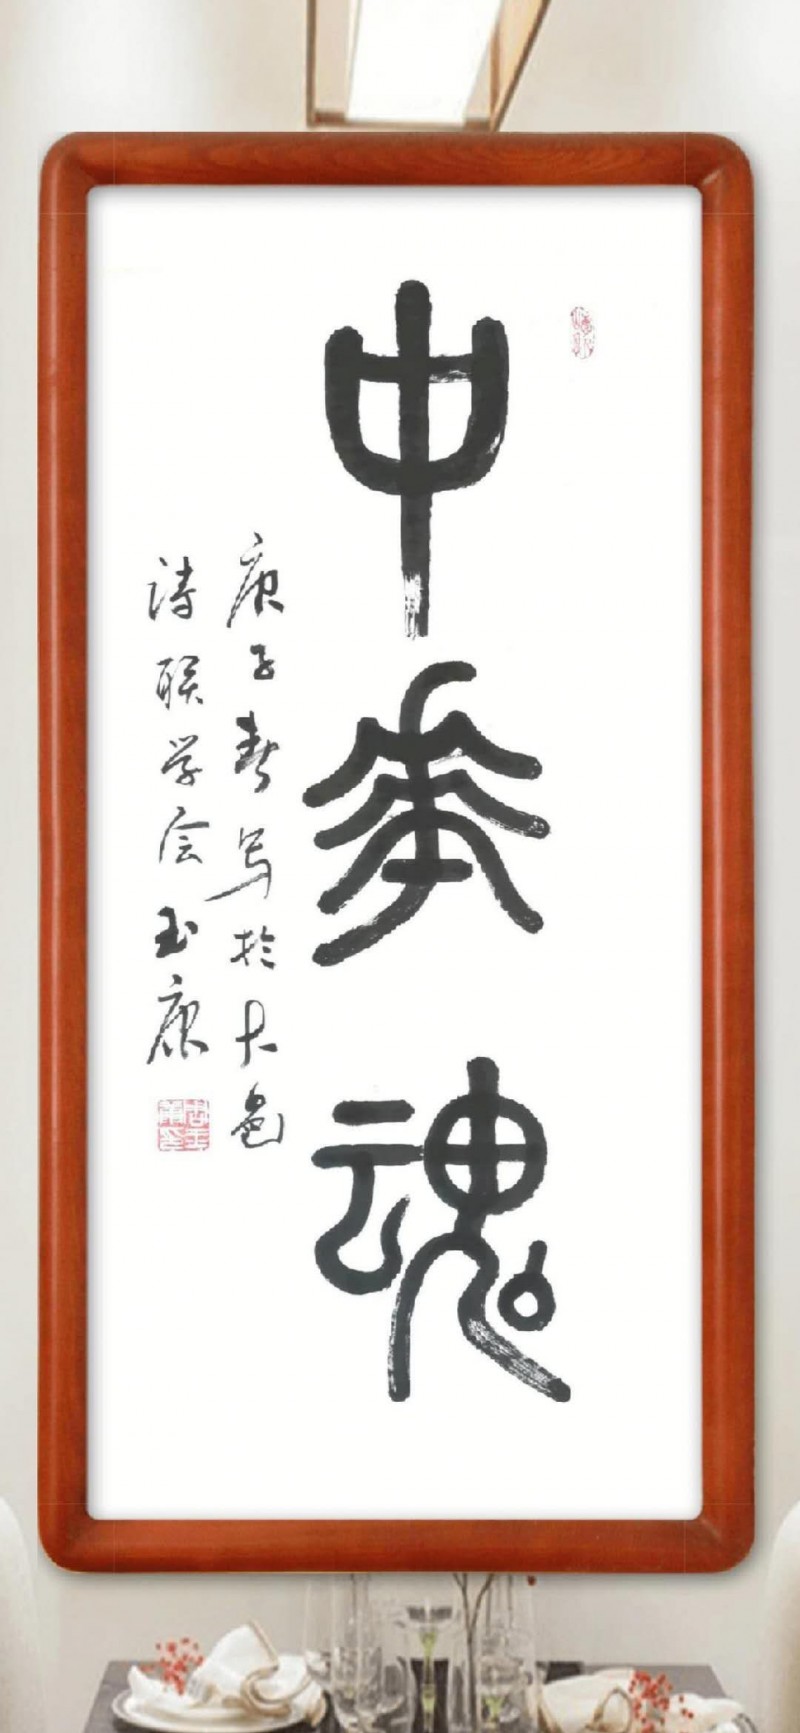 中华魂
庚子春写于大邑
诗联学会玉康